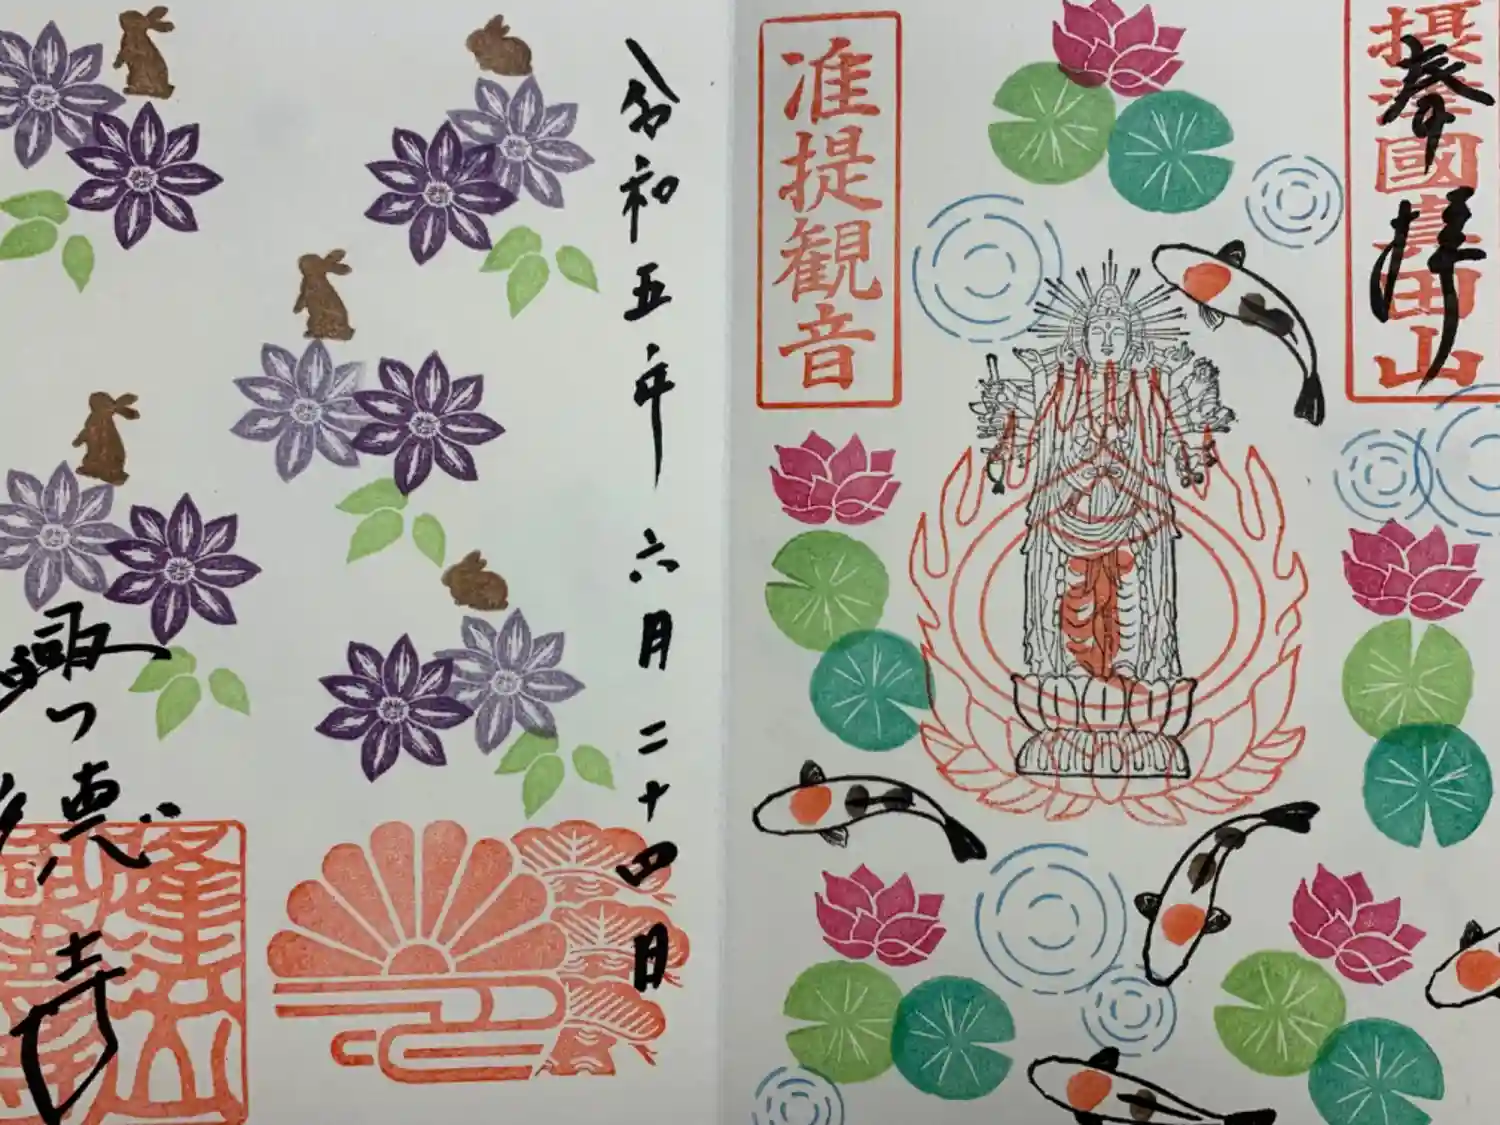 奉拝
摂津國真田山
准提観音
令和五年六月二十四日
寺